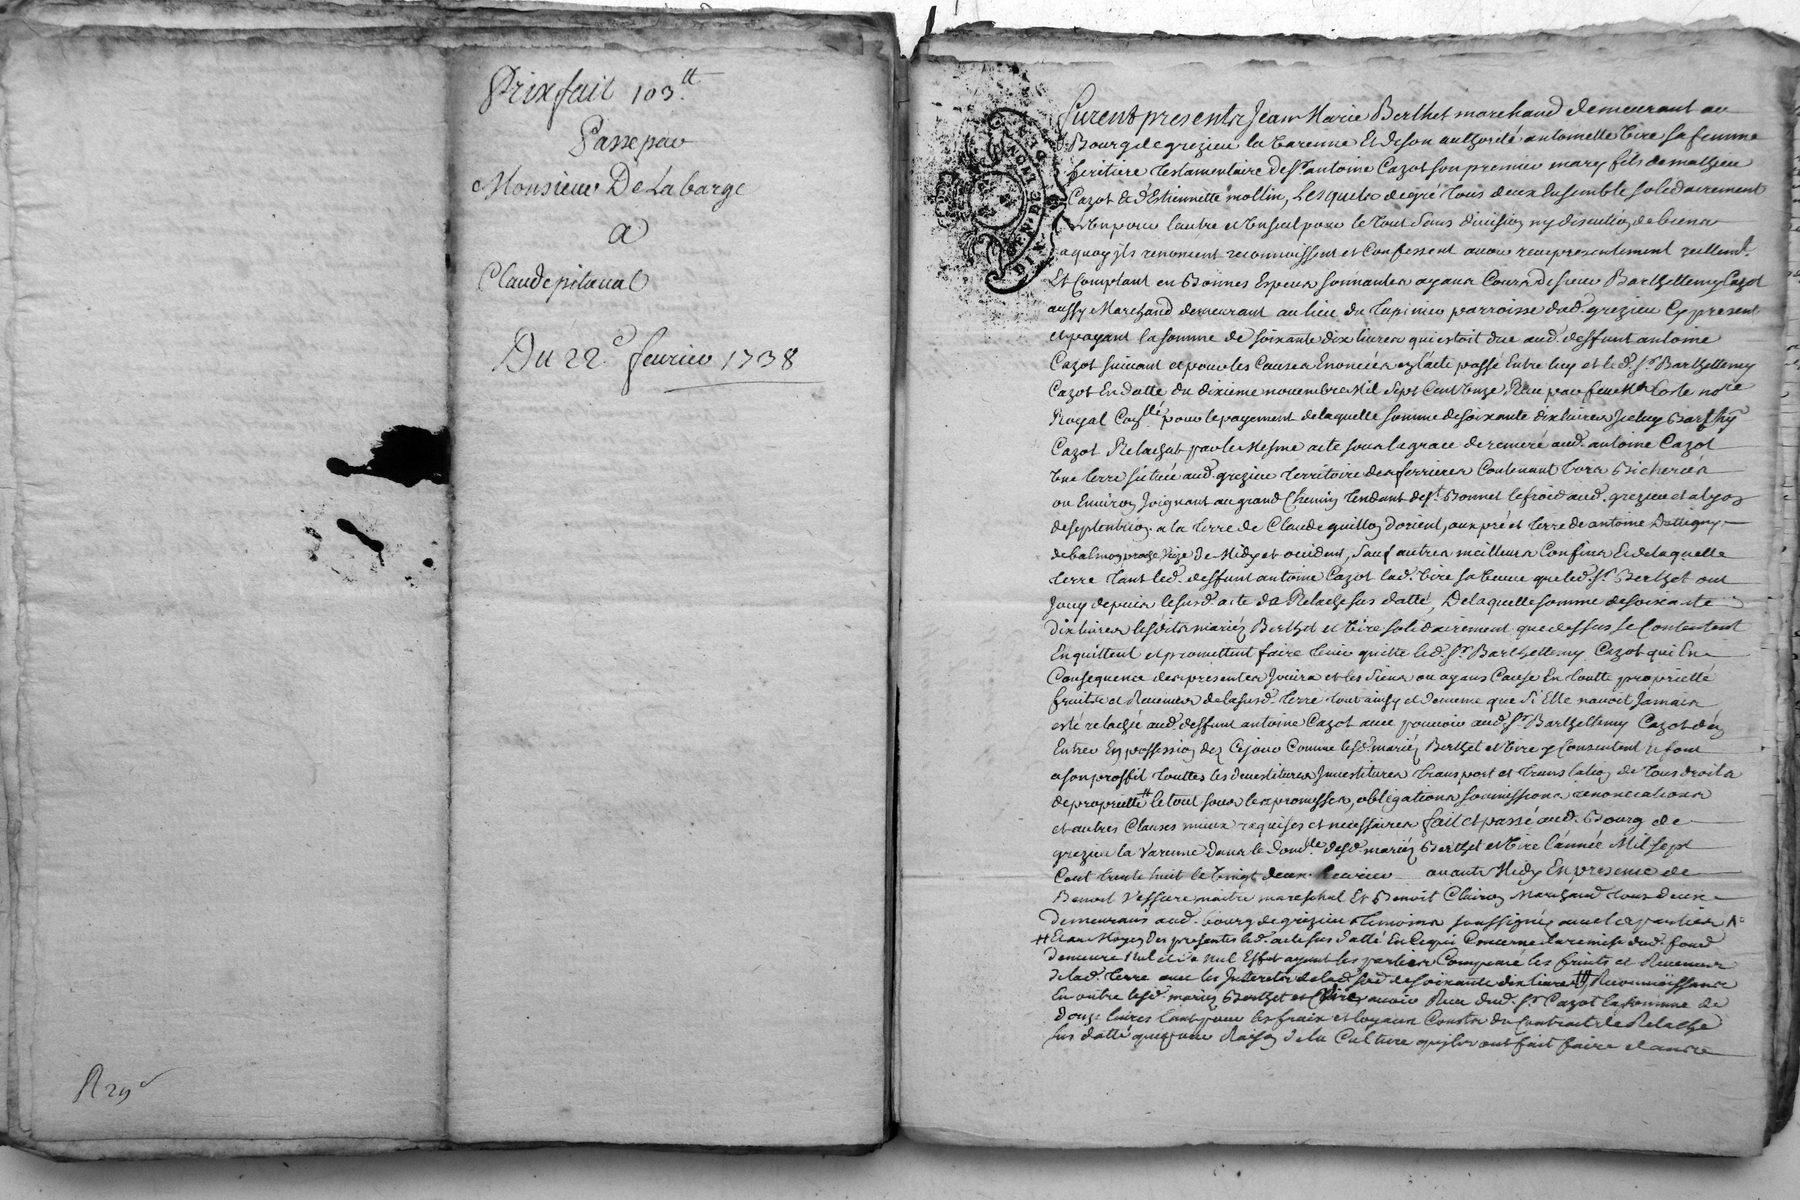 Prixfait 103.tt
Passe par
Monsieur De Labarge
a
Claude pitaval
Du 22e. fevrier 1738
R 29
furent presents Jean Marie Berthet marchand demeurant au
Bourg de grezieu la varenne Et de son authorité antoinette Vire sa femme
heritiere testamentaire de Sr. antoine Cazot son premier mary fils de mathieu
Cazot & d'Estiennette mollin, Lesquels de gré tous deux Ensemble solidairement
L'un pour lautre et un seul pour le tout sans division ny discution de biens
a quoy ils renoncent reconnoissent et Confessent avoir receu presentement reellemt.
Et Comptant en Bonnes Especes sonnantes ayans Cours de sieur Barthellemy Cazot
aussy Marchand demeurant au lieu du parroisse dud. grezieu Cy present
et payant la somme de soixante dix livres qui estoit due aud. deffunt antoine
Cazot suivant et pour les Causes Enoncées en l'acte passé Entre luy et led. Sr. Barthellemy
Cazot En datte du dixieme novembre Mil Sept Cent Onze Receu par feu Me no.re
Royal pour le payement de laquelle somme de soixante dix livres Iceluy Barthy
Cazot Relachat par le Mesme acte sous la grace de remeré aud. antoine Cazot
Une terre scituée aud. grezieu territoire des ferrieres Contenant trois Bicherées
ou Environ Joignant au grand Chemin tendant de St. Bonnet le froid aud. grezieu et a lyon
de septentrion, a la terre de Claude guillon d'orient, aux pré et terre de antoine
de Midy et occident, sauf autres meilleurs Confins Et de laquelle
terre tant led. deffunt antoine Cazot lad. Vire sa veuve que led. Sr. Berthet ont
Jouy depuis le susd. acte de Relache sus datté, De laquelle somme de soixante
dix livres lesdits mariés Berthet et Vire solidairement que dessus se Contentent
En quittent et promettent faire tenir quitte led. Sr. Barthellemy Cazot qui En
Consequence des presentes Jouira et les siens ou ayans Cause En toutte proprieté
fruits et Revenus de la susd. terre tout ainsy et de meme que si Elle navoit Jamais
esté relachée aud. deffunt antoine Cazot avec pouvoir aud. Sr. Barthellemy Cazot d'en
Entrer En possession dez Cejour Comme lesd. mariés Berthet et Vire y Consentent & font
a son proffit touttes les devestitures Investitures transport et translation de tous droits
de proprietté # le tout sous les promesses, obligations soumissions renonciations
et autres Clauses mieux requises et necessaires fait et passé aud. Bourg de
grezieu la Varenne dans le dom.lle desd. mariés Berthet et Vire l'année Mil Sept
Cent trente huit le vingt deux fevrier avant Midy En presence de
Benoit Vessiere maitre mareschal Et Benoit Clairon Marchand tous deux
demeurans aud. bourg de grezieu temoins soussignés avec les parties
# Et au Moyen des presentes led. acte sus datté En ce qui Concerne la remise dud. fond
demeure Nul et de Nul Effet ayant les parties Compensé les fruits et Revenus
de lad. terre avec les Interets de lad. so.e de soixante dix livres Reconnoissance
En outre lesd. mariés Berthet et Vire avoir Receu dud. Sr. Cazot la somme de
douze livres tant pour les fraix et loyaux Couts du Contract de Relache
sus datté que pour Raison de la Culture qu'ils ont fait faire